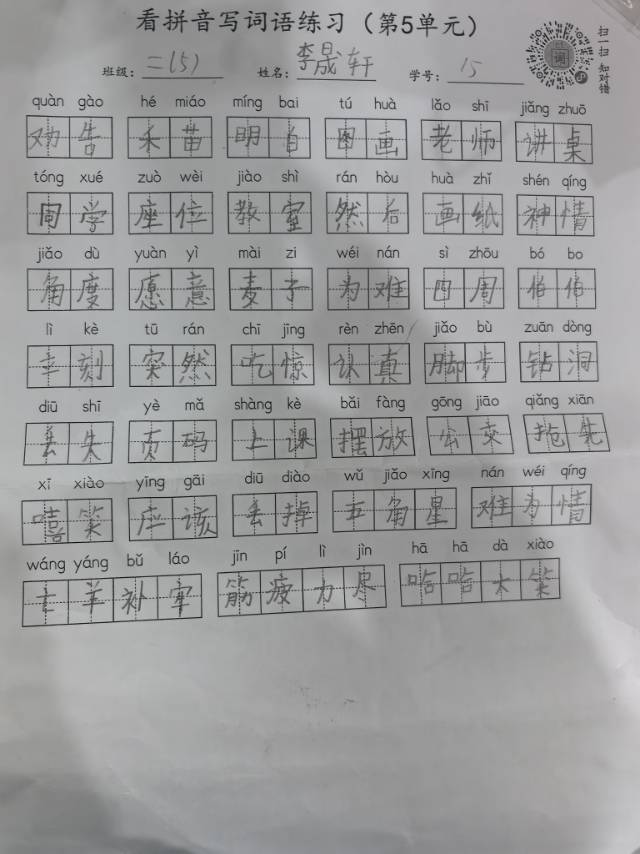 看拼音写词语练习（第5单元）
扫一扫 知对错
班级：二(5) 姓名：李晟轩 学号：15
quàn gào hé miáo míng bai tú huà lǎo shī jiǎng zhuō
劝告 禾苗 明白 图画 老师 讲桌
tóng xué zuò wèi jiào shì rán hòu huà zhǐ shén qíng
同学 座位 教室 然后 画纸 神情
jiǎo dù yuàn yì mài zi wéi nán sì zhōu bó bo
角度 愿意 麦子 为难 四周 伯伯
lì kè tū rán chī jīng rèn zhēn jiǎo bù zuān dòng
立刻 突然 吃惊 认真 脚步 钻洞
diū shī yè mǎ shàng kè bǎi fàng gōng jiāo qiǎng xiān
丢失 页码 上课 摆放 公交 抢先
xī xiào yīng gāi diū diào wǔ jiǎo xīng nán wéi qíng
嘻笑 应该 丢掉 五角星 难为情
wáng yáng bǔ láo jīn pí lì jìn hā hā dà xiào
亡羊补牢 筋疲力尽 哈哈大笑